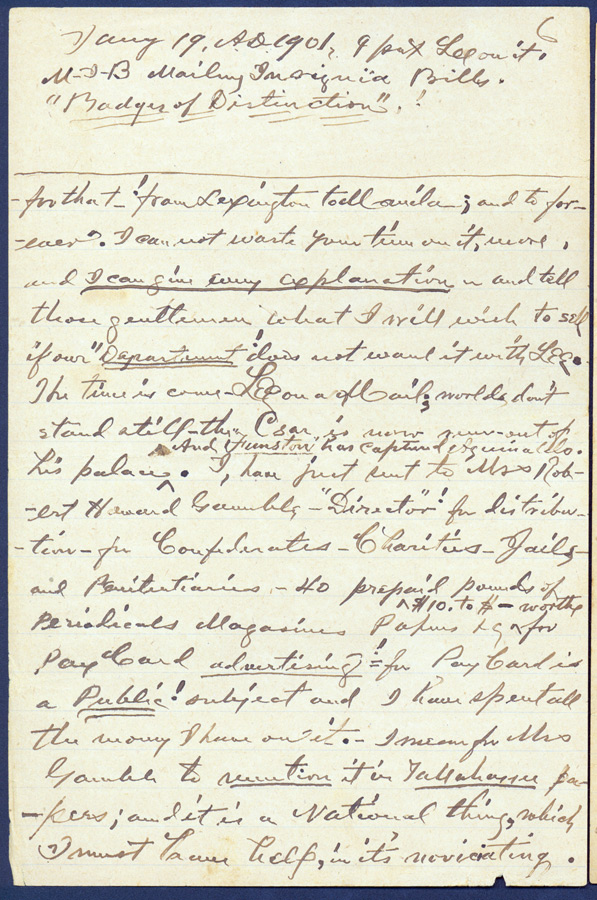 6
Jany 19, A.D. 1901, I put Lee on it.
M-I-B Mailing Insignia Bills.
"Badges of Distinction".!
-for that- 'from Lexington to Manila-; and to for-
-ever". I can not waste your time on it, more,
and I can give every explanation and tell
those gentlemen what I will wish to sell
if our "Department" does not want it with Lee.
The time is come- Lee on a of Mail; worlds don't
stand still- the Czar is now run-out of
And "Funston" has captured Aguinaldo.
his palace. I, have just sent to Mrs Rob-
-ert Howard Gamble-"Director"! for distribu-
-tion- for Confederates- Charities- Jails-
and Penitentiaries, - 40 prepaid pounds of
Periodicals Magazines Papers &c for
$10. to $- worths
Pay Card advertising!= for Pay Card is
a Public! subject and I have spent all
the money I have on it.- I mean for Mrs
Gamble to mention it in Tallahassee pa-
-pers; and it is a National thing, which
I must have help, in it's noviciating.